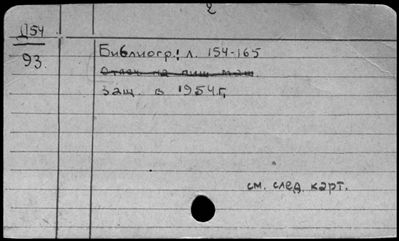 2
Д54
93.
Библиогр.: л. 154-165
Отпеч. на пиш. маш.
Защ. в 1954г.
см. след. карт.